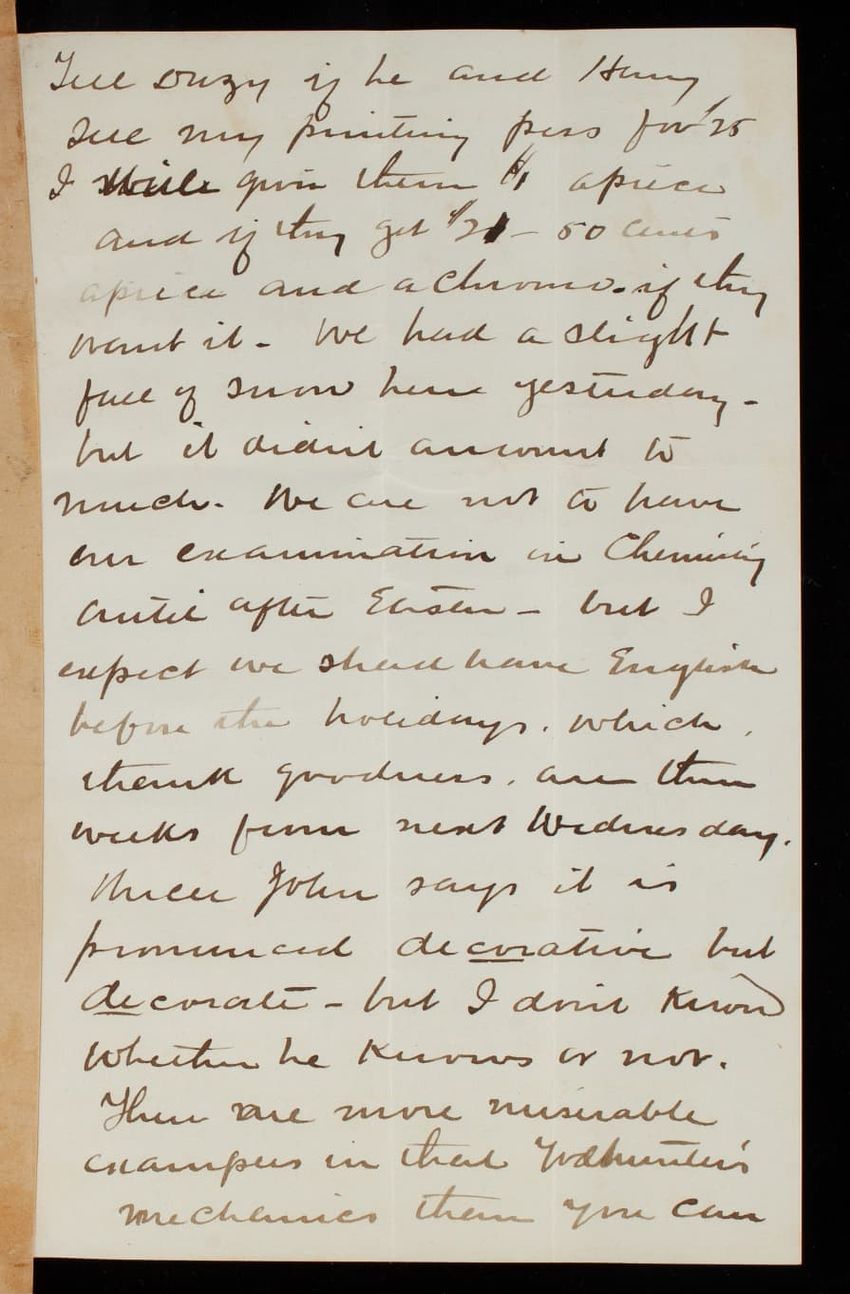 Tell Suzy if he and Harry
sell my printing press for $25
I will give them $1 apiece
and if they get $21 - 50 cents
apiece and a chromo. if they
want it - We had a slight
fall of snow here yesterday -
but it didn't amount to
much. We are not to have
our examination in Chemistry
until after Easter - but I
expect we shall have English
before the holidays. which,
thank goodness. are three
weeks from next Wednesday.
Uncle John says it is
pronounced decorative but
decorate - but I don't know
whether he knows or not.
There are more miserable
examples in that Todhunter's
mechanics than you can